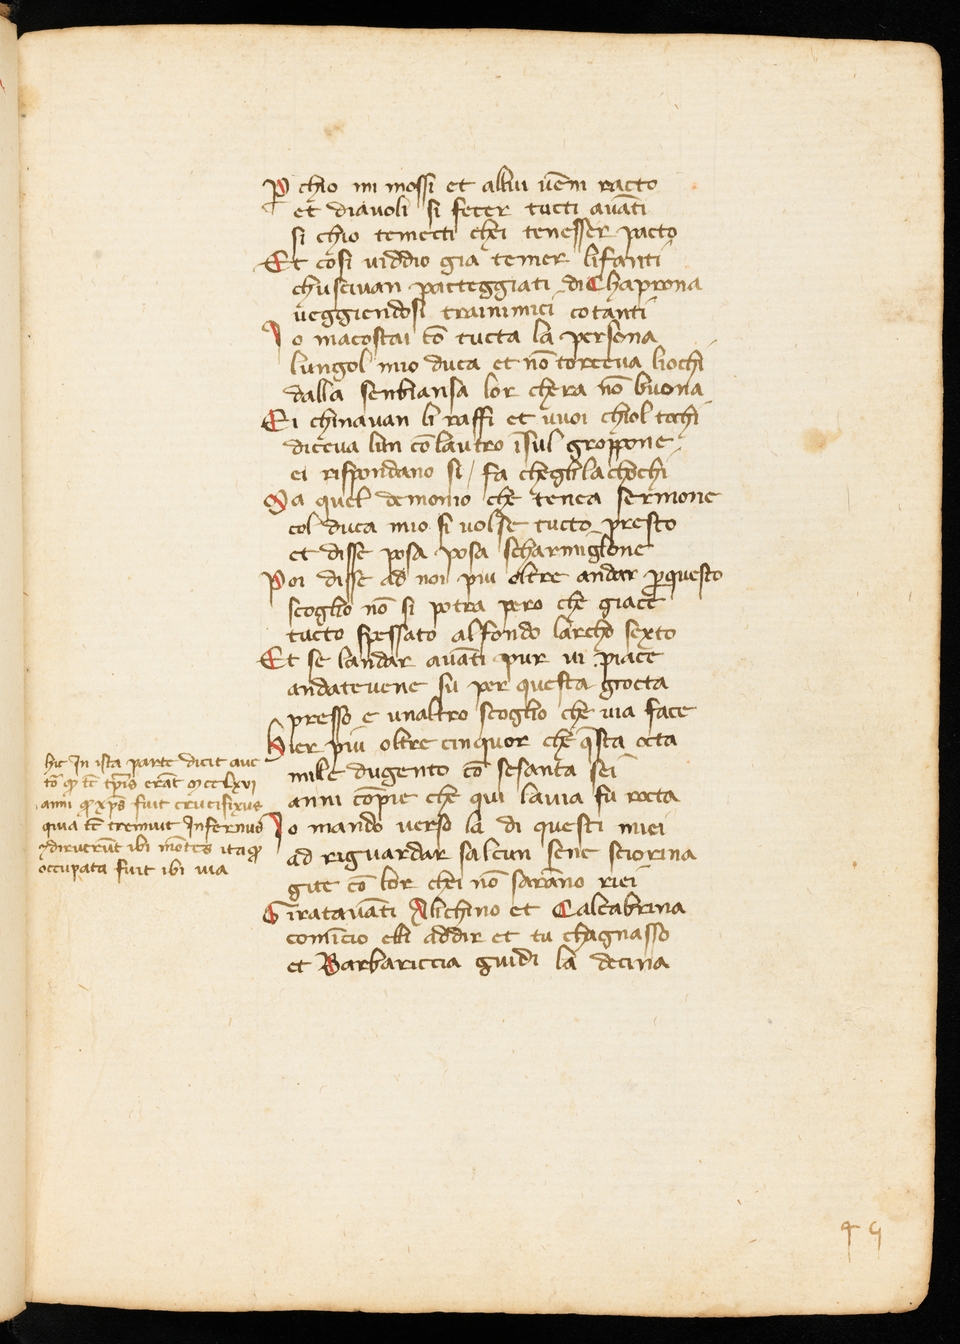 P chio mi mossi et allui vēni racto
et diavoli si fecer tucti avāti
si chio temecti chei tenesser pacto
Et cosi viddio gia temer li fanti
chuscivan patteggiati di Chaprona
veggiendosi tra inimici cotanti
Io macostai cō tucta la persona
lungol mio duca et nō torceva liochi
dalla senbiansa lor chera nō buona
Ei chinavan li raffi et vuoi chiol tochi
diceva lun cō lautro ī sul groppone
ei rispondano si / fa cheglilachochi
Ma quel demonio che tenea sermone
col duca mio si volse tucto presto
et disse posa posa scharmiglione
Poi disse ad noi piu oltre andar ꝑ questo
scoglio nō si potra pero che giace
tucto spessato al fondo larcho sexto
Et se landar avāti pur vi piace
andatevene su per questa grocta
presso e unaltro scoglio che via face
Hier piu oltre cinquor che q̄sta octa
mile dugento cō sesanta sei
anni cōpie che qui la via fu rocta
Io mando verso la di questi miei
ad riguardar salcun sene sciorina
gite cō lor chei nō sarāno riei
Giratavāti Alichino et Calcabrina
comīcio elli addir et tu chagnasso
et Barbariccia guidi la decina
hic In ista parte dicit auc
tō qͦ tc̄ tp̄is erāt Mcclxvi
anni qͦ xp̄s fuit crucifixus
quia tc̄ tremuit Infernus
⁊ diruerūt ibi mōtes ita qͦ
occupata fuit ibi via
49